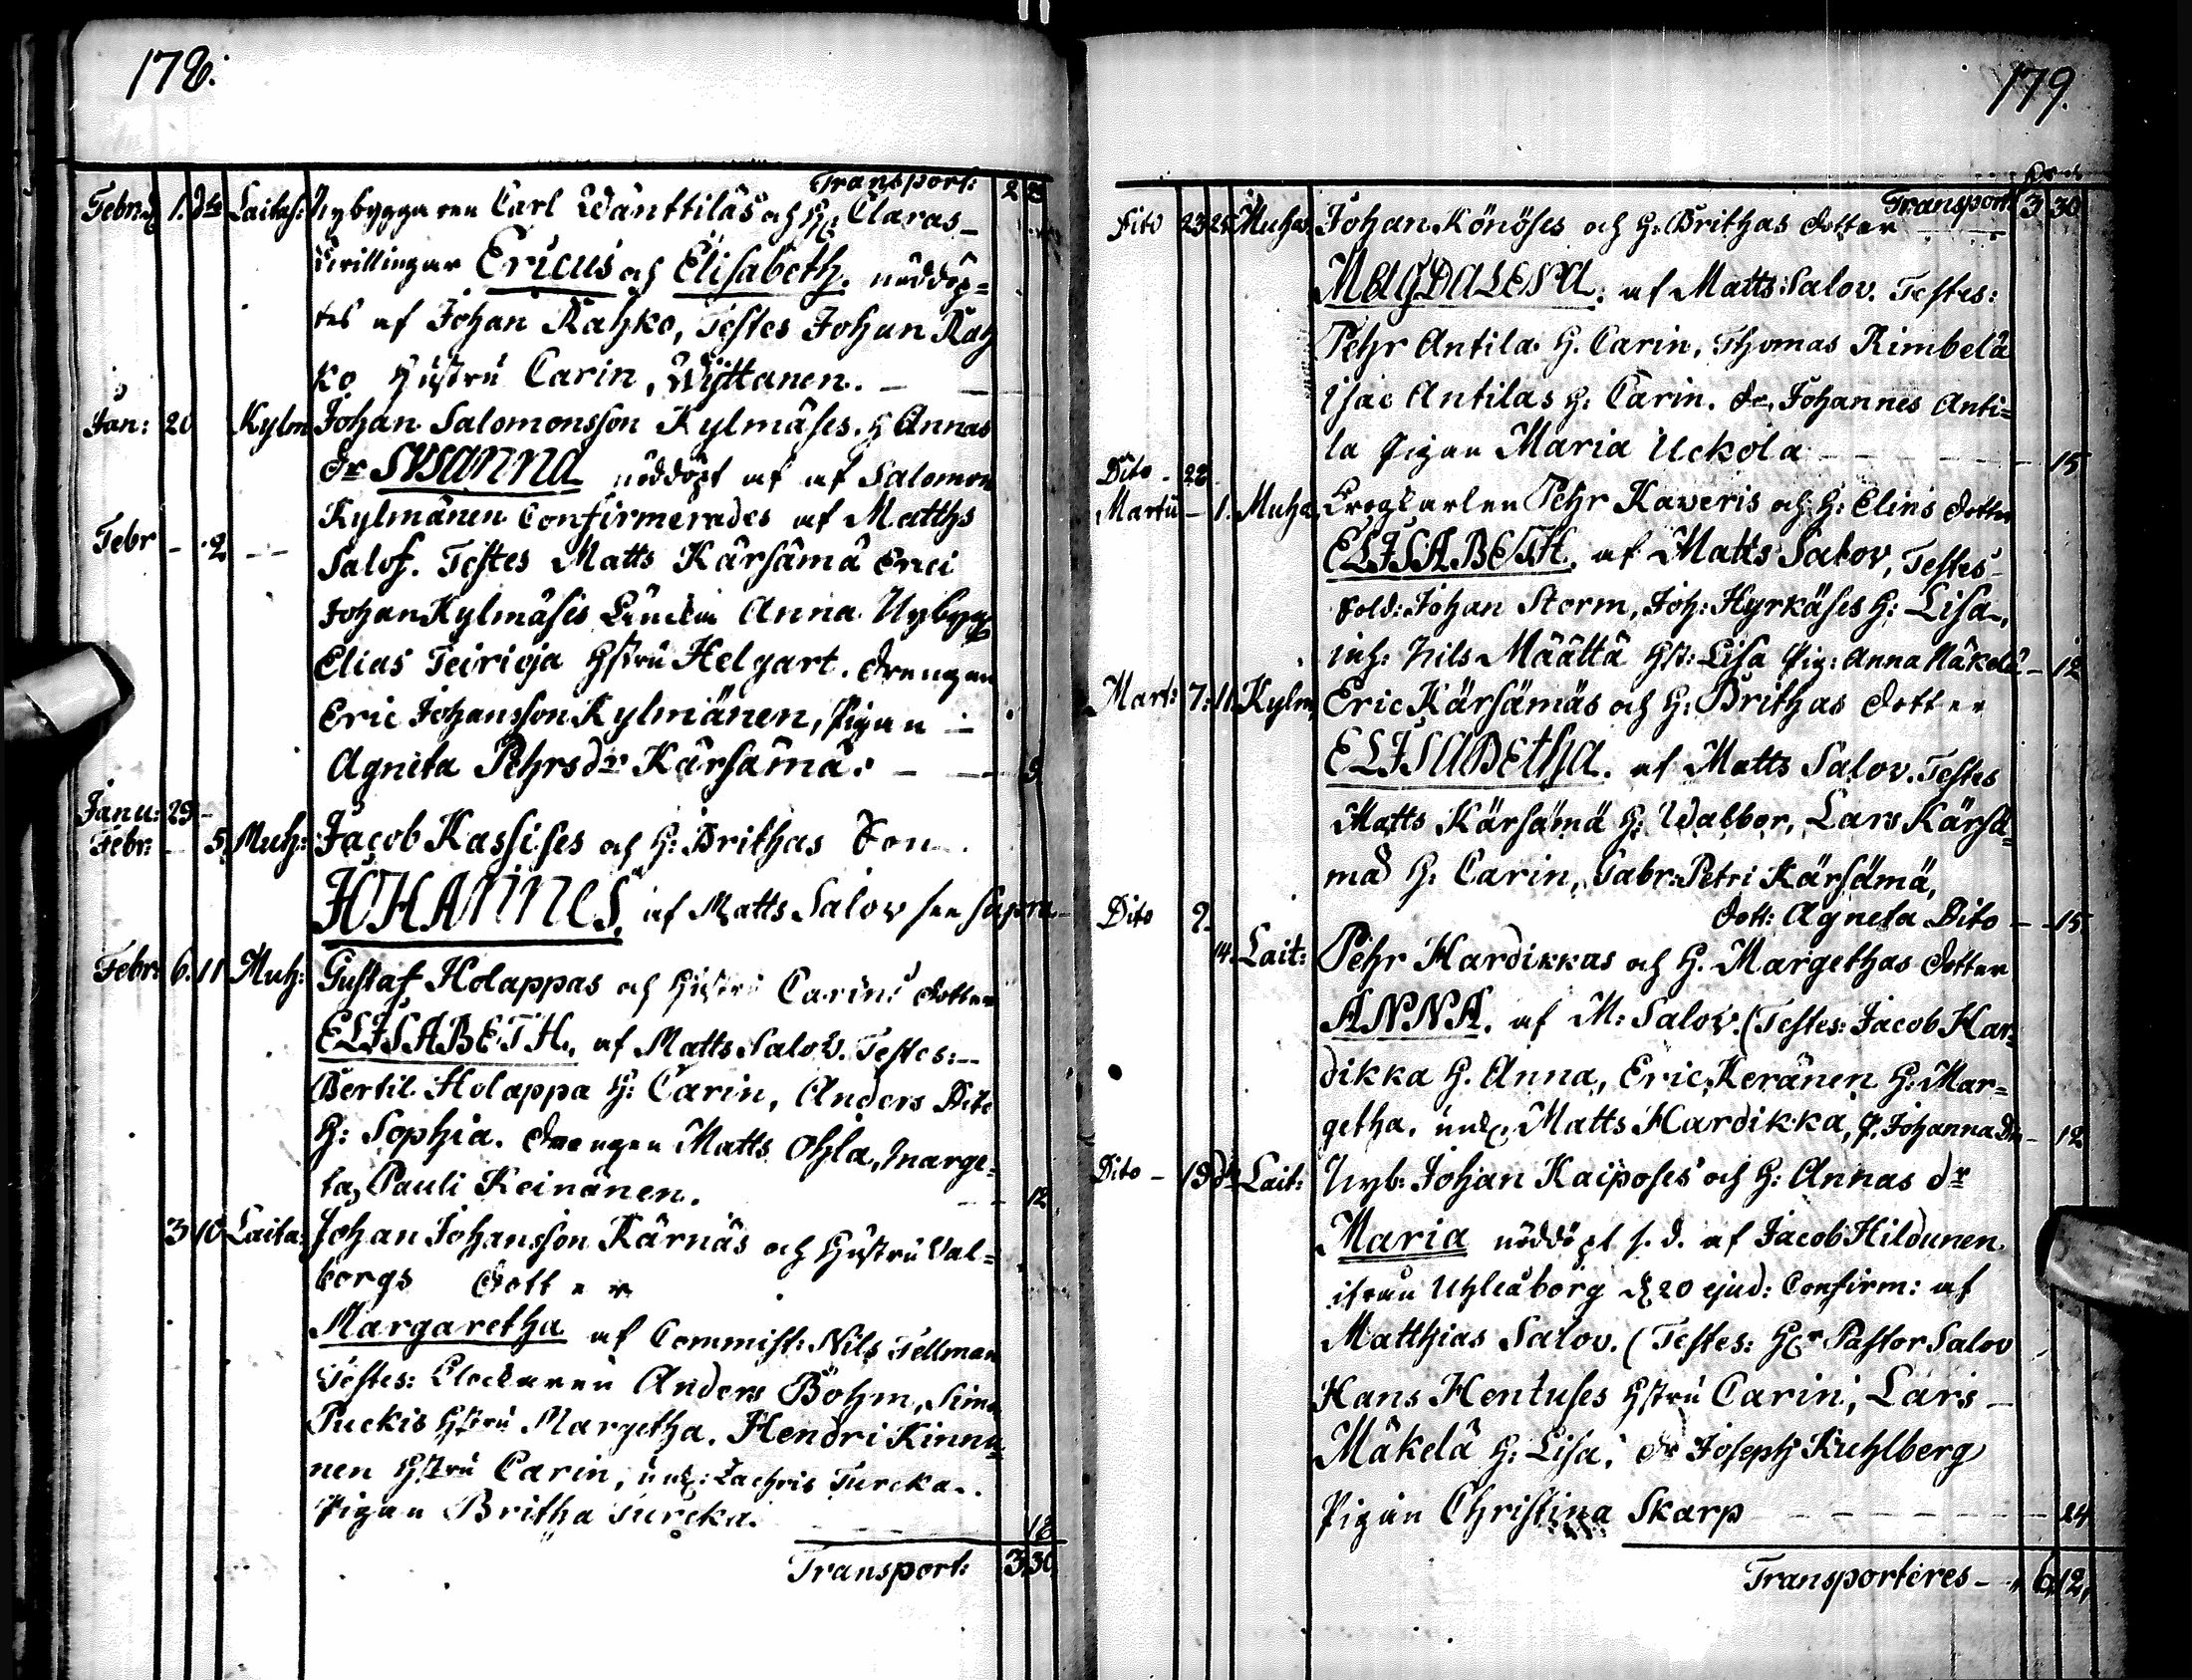 178.
Transport: 2 23
Febru 1. dto Laitas: Nybyggaren Carl Wänttiläs och H: Claras
Tvillingar Ericus och Elisabeth. nöddöp=
tes af Johan Rahko, Testes Johan Rah
ko Hustru Carin, Wyttanen.
Jan: 20 Kylm Johan Salomonsson Kylmäses. H Annas
dr SUSANNA nöddöpt af af Salomon
Kylmänen Confirmerades af Matths
Febr - 2 Salof. Testes Matts Kärsämä Erici
Johan Kylmäses Anna Nybygg
Elias Teirioja Hstru Helgart. Drengen
Eric Johansson Kylmänen, Pigan
Agneta Pehrsdr Kärsämä. 9
Janu: 29
Febr: 5. Muh: Jacob Kassises och H: Brithas Son
JOHANNES. af Matts Salov see supra
Febr: 6. 11 Muh: Gustaf Holappas och Hustru Carins dotter
ELISABETH. af Matts Salov. Testes:
Bertil Holappa H: Carin, Anders Dito
H: Sophia. Drengen Matts Ohla, Marge=
ta, Pauli Keinänen. 12
3 10 Laita: Johan Johansson Kärnäs och Hustru Val=
borgs Dotter
Margaretha af Commist: Nils Tellman
Testes: Clockaren Anders Bohm, Simo
Puckis Hstru Margetha. Hendri Kinnu=
nen Hstru Carin, Turcka.
Pigan Britha Turcka. 18
Transport: 3 30
179.
Transport 3 30
Dito 23 25 Muhos Johan Könöses och H. Brithas dotter
MAGDALENA. af Matts Salov. Testes:
Pehr Antila H. Carin, Thomas Kimbelä
Isac Antilas H: Carin. dr. Johannes Anti=
la Pigan Maria Uckola 15
Dito - 28
Martii - 1. Muho. Pehr Kaweris och H: Elins dotter
ELISABETH. af Matts Salov, Testes
Sold: Johan Storm, Joh: Hyrkäses H: Lisa,
inh: Nils Määttä Hst: Lisa Pig: Anna Mäkelä 12
Mart: 7. 11. Kylm, Eric Kärsämäs och H: Brithas dotter
ELISABETHA. af Matts Salov. Testes
Matts Kärsämä H: Walbor, Lars Kärsä=
mä H: Carin, Gabr: Petri Kärsämä,
dott: Agneta Dito 15
Dito 9.
14. Lait: Pehr Hardikkas och H. Margethas dotter
ANNA. af M: Salov. (Testes: Jacob Har=
dikka H. Anna, Eric Keränen H: Mar=
getha. Matts Hardikka, P. Johanna Dito 12
Dito - 19 dto Lait: Nyb: Johan Kaiposes och H: Annas dr
Maria nöddöpt s. d. af Jacob Hildunen
ifrån Uhleåborg d 20 ejud: Confirm: af
Matthias Salov. (Testes: Hr Pastor Salov
Hans Hentuses Hstru Carin, Lars
Mäkelä H: Lisa, dr Joseph Kuhlberg
Pigan Christina Skarp 24
Transporteres 6 12